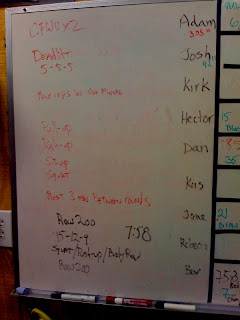 CFWUx2
Deadlift
5-5-5
Max reps in one minute
Pull-up
Push-up
Sit-up
Squat
Rest 3 min between rounds
Row 200
15-12-9
7:58
Squat/Push-up/Body Row
Row 200
Adam
305
Josh
Kirk
Hector
Dan
Kris
Jamie
Roberto
Ben
15
Blue
35
21
7:58
Red
7